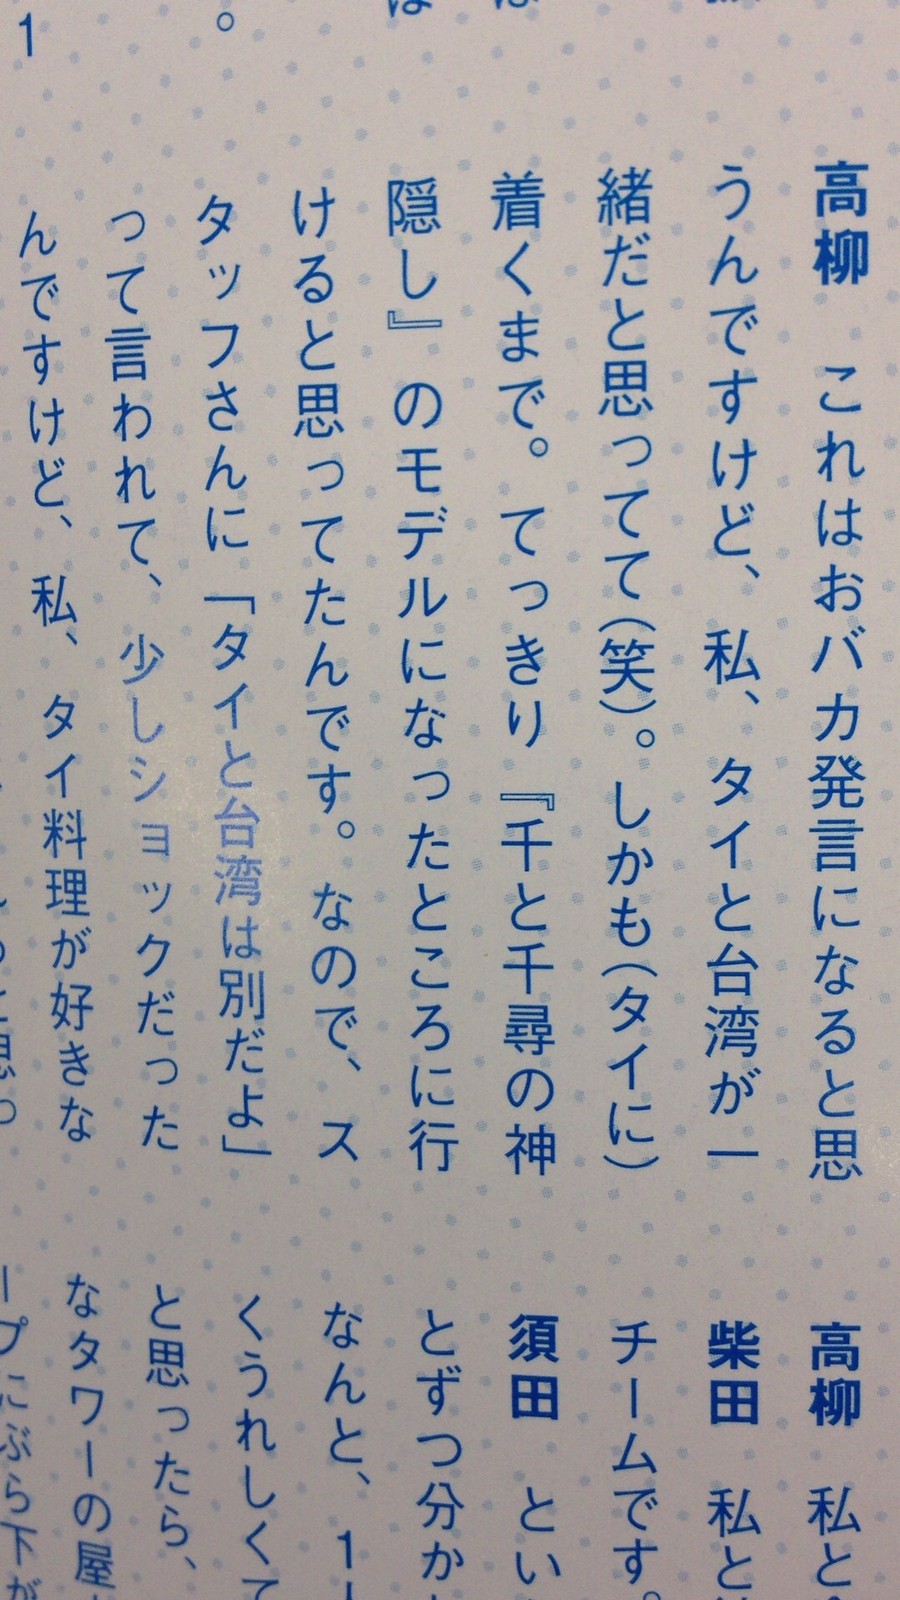 高柳 これはおバカ発言になると思
うんですけど、私、タイと台湾が一
緒だと思ってて(笑)。しかも(タイに)
着くまで。てっきり『千と千尋の神
隠し』のモデルになったところに行
けると思ってたんです。なので、ス
タッフさんに「タイと台湾は別だよ」
って言われて、少しショックだった
んですけど、私、タイ料理が好きな
高柳 私と
柴田 私と
チームです。
須田 とい
とずつ分か
なんと、1
くうれしくて
と思ったら、
なタワーの屋
ープにぶら下が